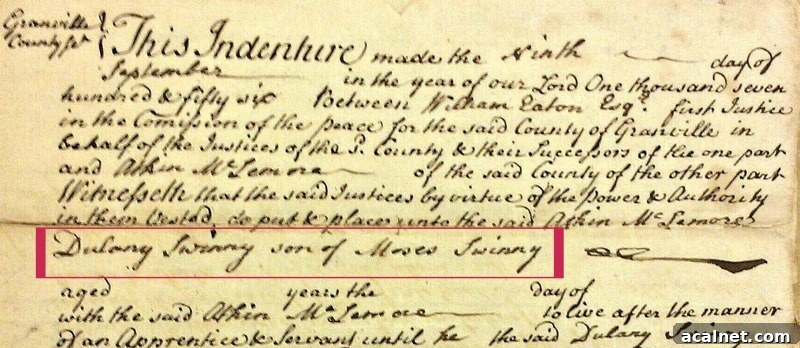 Granville
County Sct
This Indenture made the Ninth day of
September in the year of our Lord One thousand seven
hundred & fifty six Between William Eaton Esqr. first Justice
in the Comission of the peace for the said County of Granville in
behalf of the Justices of the sd. County & their Successors of the one part
and Athin McLemore of the said County of the other part
Witnesseth that the said Justices by virtue of the Power & Authority
in them Vested, do put & place unto the said Athin McLemore
Dulany Swinny son of Moses Swinny
aged years the day of
with the said Athin McLemore to live after the manner
of an Apprentice & Servant until he the said Dulany
acalnet.com